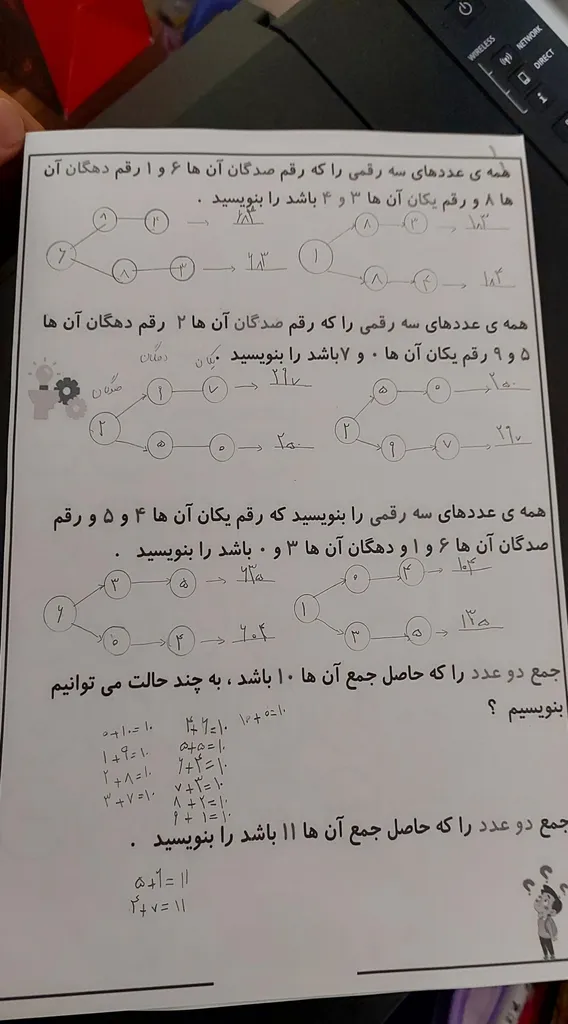 WIRELESS
NETWORK
DIRECT
همه ی عددهای سه رقمی را که رقم صدگان آن ها ۶ و ۱ رقم دهگان آن
ها ۸ و رقم یکان آن ها ۳ و ۴ باشد را بنویسید .
۶ ۸ ۴ ۶۸۴ ۱ ۸ ۳ ۱۸۳
۸ ۳ ۶۸۳ ۸ ۴ ۱۸۴
همه ی عددهای سه رقمی را که رقم صدگان آن ها ۲ رقم دهگان آن ها
۵ و ۹ رقم یکان آن ها ۰ و ۷باشد را بنویسید .
صدگان دهگان یکان
۲ ۹ ۷ ۲۹۷ ۲ ۵ ۰ ۲۵۰
۵ ۰ ۲۵۰ ۹ ۷ ۲۹۷
همه ی عددهای سه رقمی را بنویسید که رقم یکان آن ها ۴ و ۵ و رقم
صدگان آن ها ۶ و ۱ و دهگان آن ها ۳ و ۰ باشد را بنویسید .
۶ ۳ ۵ ۶۳۵ ۱ ۰ ۴ ۱۰۴
۰ ۴ ۶۰۴ ۳ ۵ ۱۳۵
جمع دو عدد را که حاصل جمع آن ها ۱۰ باشد ، به چند حالت می توانیم
بنویسیم ؟
۰+۱۰=۱۰ ۴+۶=۱۰ ۱۰+۰=۱۰
۱+۹=۱۰ ۵+۵=۱۰
۲+۸=۱۰ ۶+۴=۱۰
۳+۷=۱۰ ۷+۳=۱۰
۸+۲=۱۰
۹+۱=۱۰
جمع دو عدد را که حاصل جمع آن ها ۱۱ باشد را بنویسید .
۵+۶=۱۱
۴+۷=۱۱